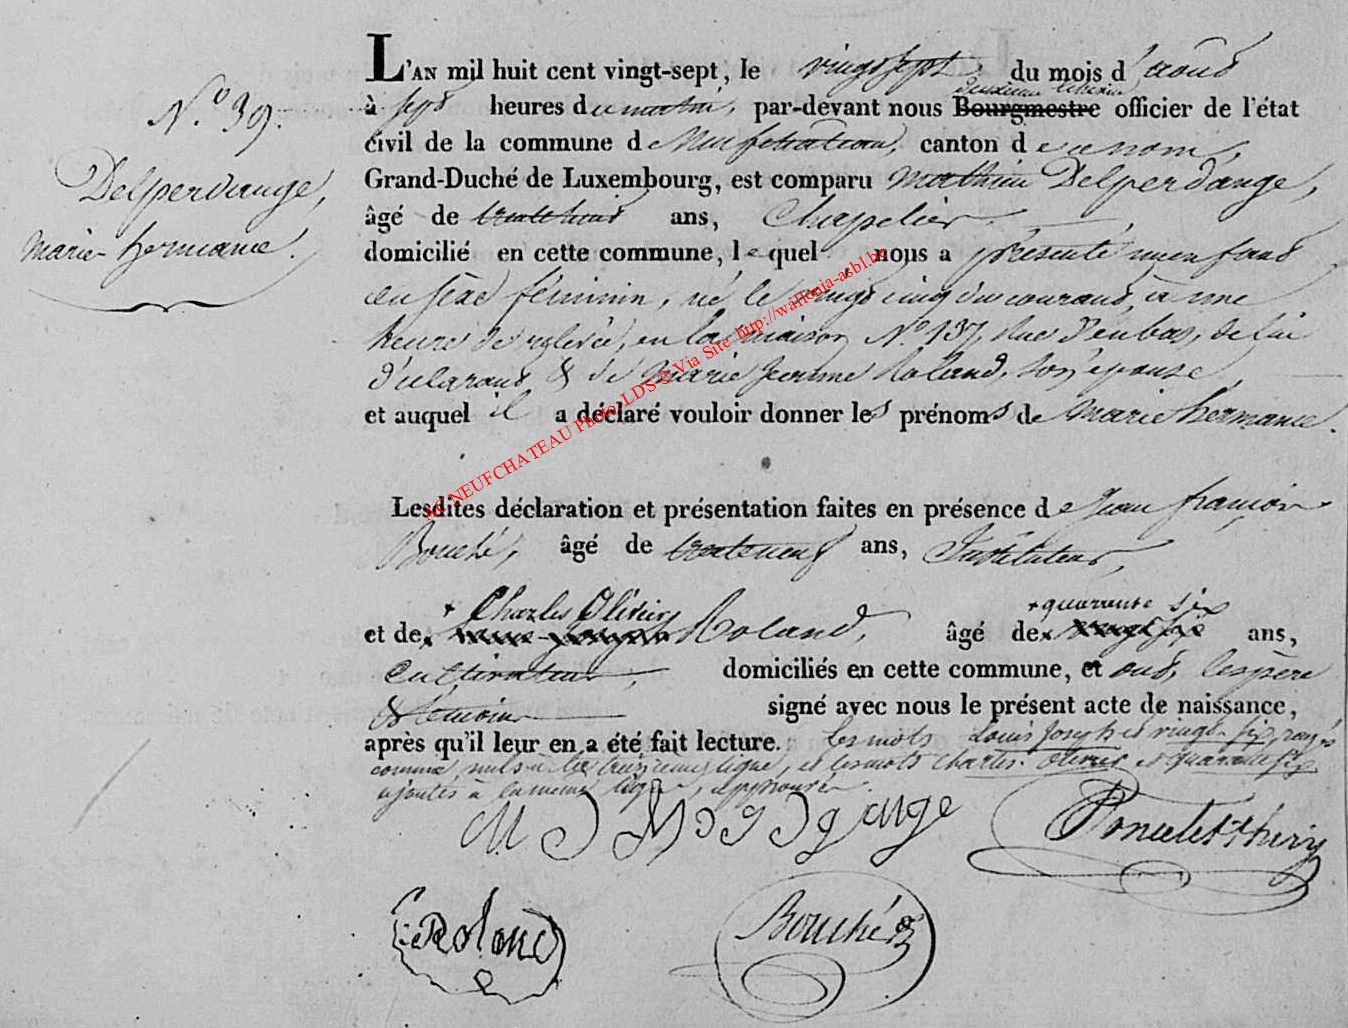 L'AN mil huit cent vingt-sept, le vingt sept, du mois d'août
N.º 39.
à sept heures du matin, par-devant nous Bourgmestre deuxième échevin officier de l'état
civil de la commune de Neufchateau, canton de ce nom,
Delperdange,
Marie-hermance.
Grand-Duché de Luxembourg, est comparu Mathieu Delperdange,
âgé de trente huit ans, Chapelier
domicilié en cette commune, lequel nous a présenté un enfant
du sexe féminin, né le vingt cinq du courant, à une
heure de relevée, en la maison Nº 137, Rue d'enbas, de lui
déclarant & de Marie Roland, son épouse,
et auquel il a déclaré vouloir donner les prénoms de Marie hermance.
Lesdites déclaration et présentation faites en présence de Jean françois
Bouché, âgé de trente neuf ans, Instituteur,
et de + Charles Olivier Roland, âgé de + quarante six vingt six ans,
Cultivateur, domiciliés en cette commune, et ont, les père
& témoins signé avec nous le présent acte de naissance,
après qu'il leur en a été fait lecture. Les mots Louis Joseph et vingt-six, rayés
comme nuls à la treizieme ligne, et les mots Charles Olivier et quarante six
ajoutés à la meme ligne, approuvés.
M D Delperdange
Poncelet
Roland
Bouché
NEUFCHATEAU Photo LDS © Via Site http://wallonia-asbl.be